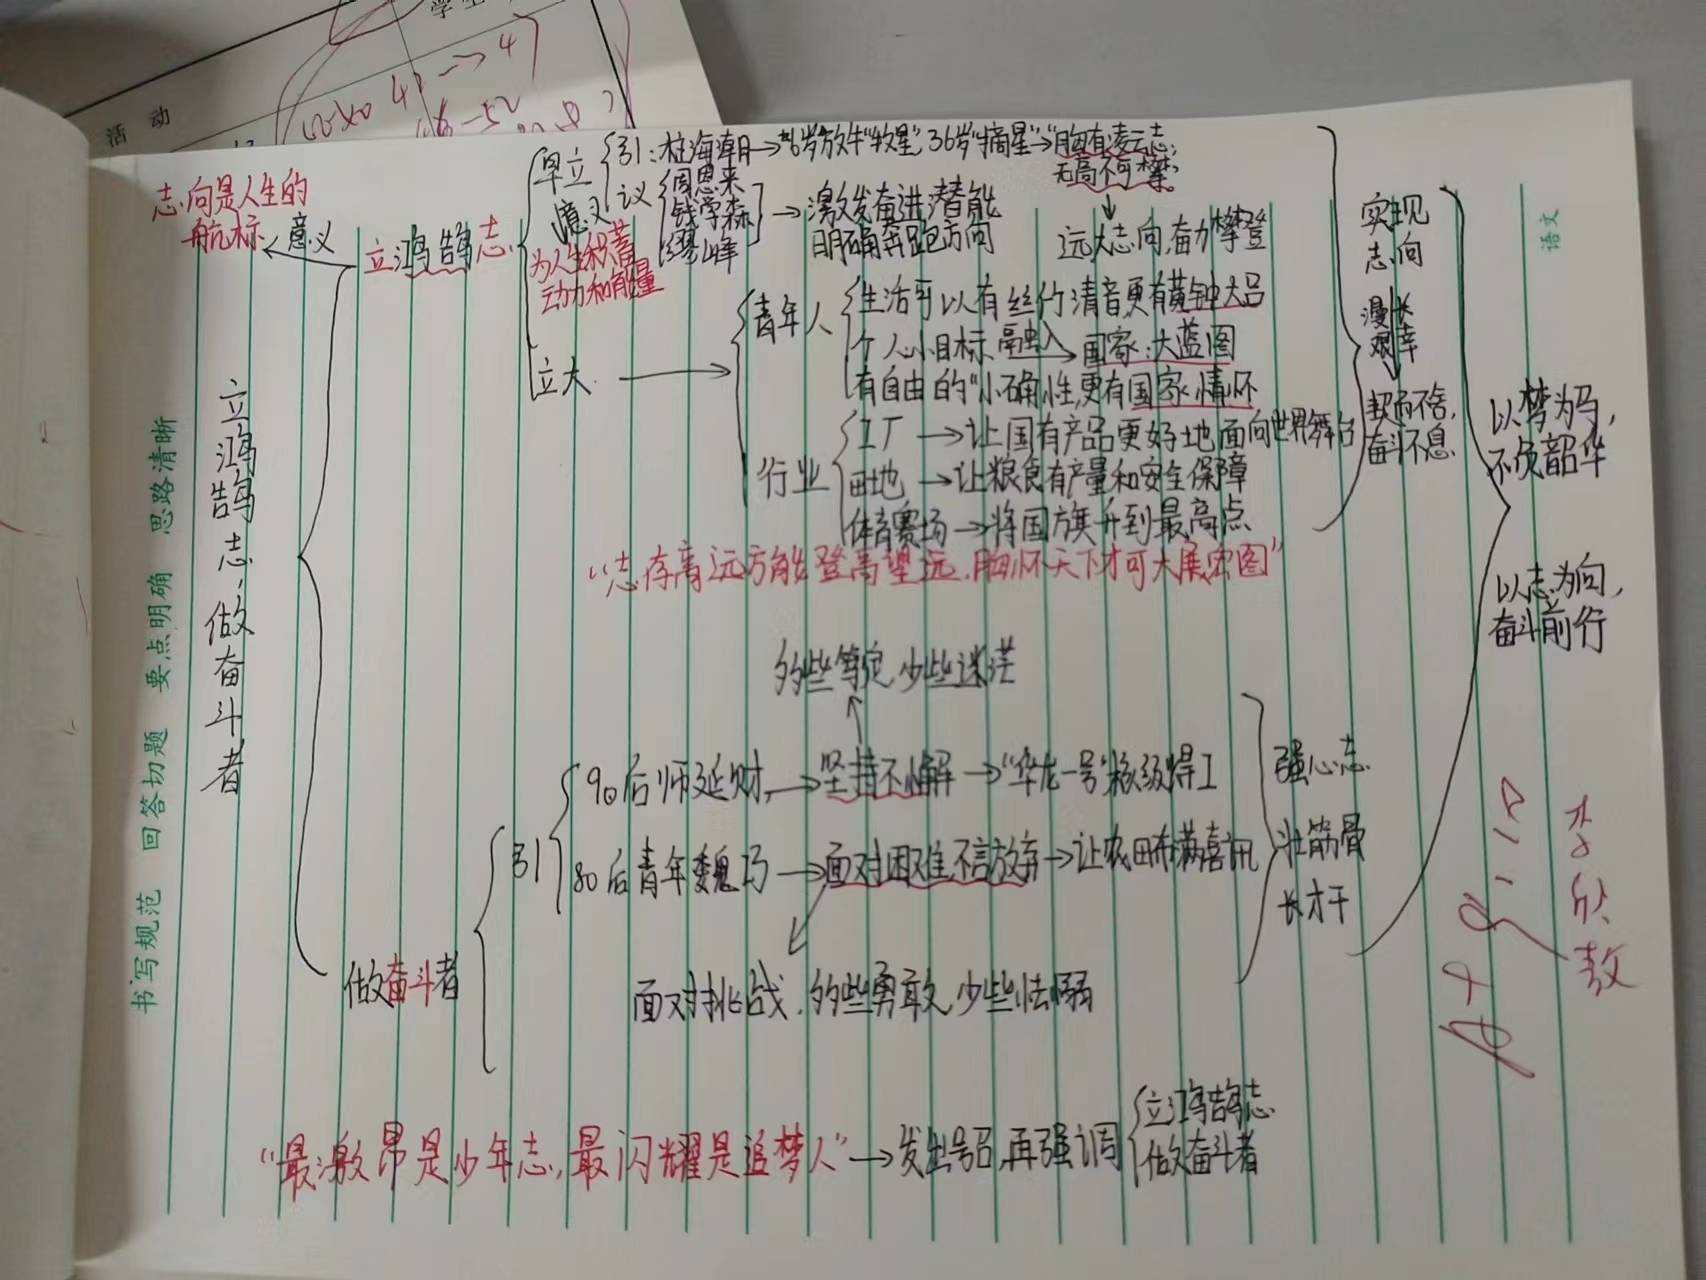 学生
活动
志向是人生的
航标
意义
立鸿鹄志,做奋斗者
立鸿鹄志
早立
意义
为人生积蓄
动力和能量
引:桂海潮→"6岁放牛"牧星"36岁"摘星"→"胸有凌云志,
无高不可攀"
议
周恩来
钱学森
→激发奋进潜能
明确奔跑方向
远大志向,奋力攀登
立大
青年人
生活可以有丝竹清音更有黄钟大吕
个人小目标融入国家:大蓝图
有自由的"小确性,更有国家情怀
行业
工厂→让国有产品更好地面向世界舞台
田地→让粮食有产量和安全保障
体育赛场→将国旗升到最高点
"志存高远方能登高望远,胸怀天下才可大展宏图"
实现
志向
漫长
艰辛
契而不舍,
奋斗不息
以梦为马,
不负韶华
以志为向,
奋斗前行
多些笃定,少些迷茫
做奋斗者
引
90后师延财→坚持不懈→"华龙一号"核级焊工
80后青年魏巧→面对困难不言放弃→让农田布满喜讯
面对挑战,多些勇敢,少些怯弱
强心志
壮筋骨
长才干
"最激昂是少年志,最闪耀是追梦人"→发出号召,再强调
立鸿鹄志
做奋斗者
书写规范 回答切题 要点明确 思路清晰
语文
A+
9.10